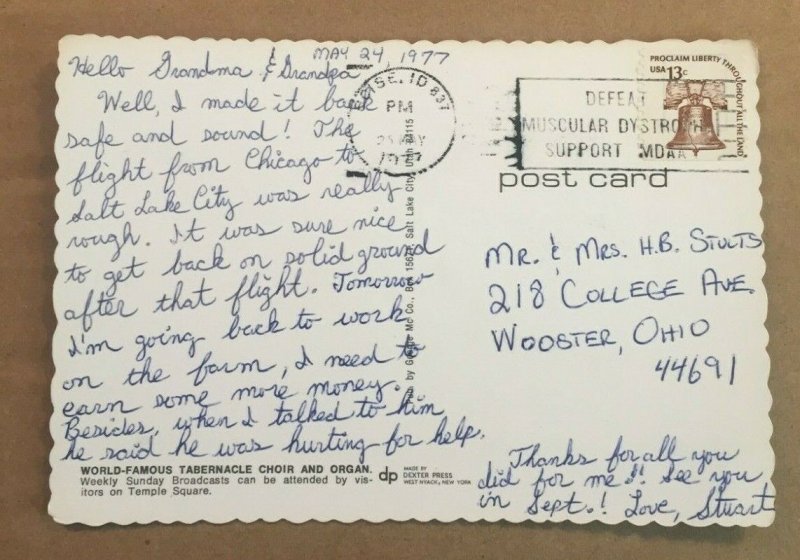 MAY 24, 1977
Hello Grandma & Grandpa
Well, I made it back
safe and sound! The
flight from Chicago to
Salt Lake City was really
rough. It was sure nice
to get back on solid ground
after that flight. Tomorrow
I'm going back to work
on the farm, I need to
earn some more money.
Besides, when I talked to him
he said he was hurting for help.
Thanks for all you
did for me!! See you
in Sept.! Love, Stuart
WORLD-FAMOUS TABERNACLE CHOIR AND ORGAN.
Weekly Sunday Broadcasts can be attended by vis-
itors on Temple Square.
dp
MADE BY
DEXTER PRESS
WEST NYACK, NEW YORK
Mc Co., Box 15671, Salt Lake City, Utah 84115
BOISE, ID 837
PM
25 MAY
1977
DEFEAT
MUSCULAR DYSTROPHY
SUPPORT MDAA
PROCLAIM LIBERTY THROUGHOUT ALL THE LAND
USA 13c
post card
MR. & MRS. H.B. STULTS
218 COLLEGE AVE.
WOOSTER, OHIO
44691